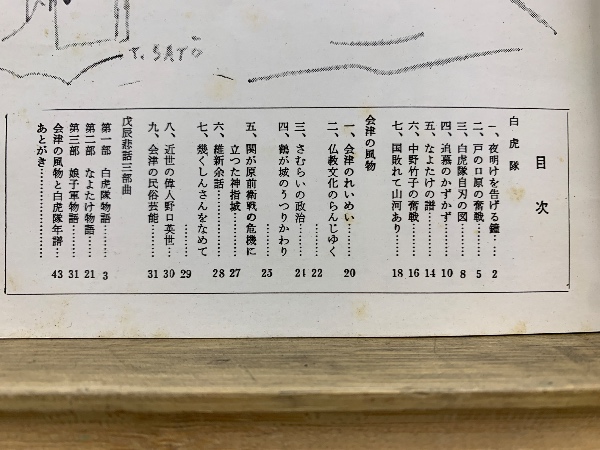 T. SATŌ
目次
白虎隊
一、夜明けを告げる鐘…………2
二、戸の口原の奮戦…………5
三、白虎隊自刃の図…………8
四、追慕のかずかず…………10
五、なよたけの譜…………14
六、中野竹子の奮戦…………16
七、国敗れて山河あり…………18
会津の風物
一、会津のれいめい…………20
二、仏教文化のらんじゆく
…………22
三、さむらいの政治…………24
四、鶴が城のうつりかわり
…………25
五、関が原前衛戦の危機に
立つた神指城…………27
六、維新余話…………28
七、幾くしんさんをなめて
…………29
八、近世の偉人野口英世…30
九、会津の民俗芸能…………31
戊辰悲話三部曲
第一部 白虎隊物語…………3
第二部 なよたけ物語………21
第三部 娘子軍物語…………31
会津の風物と白虎隊年譜…43
あとがき…………